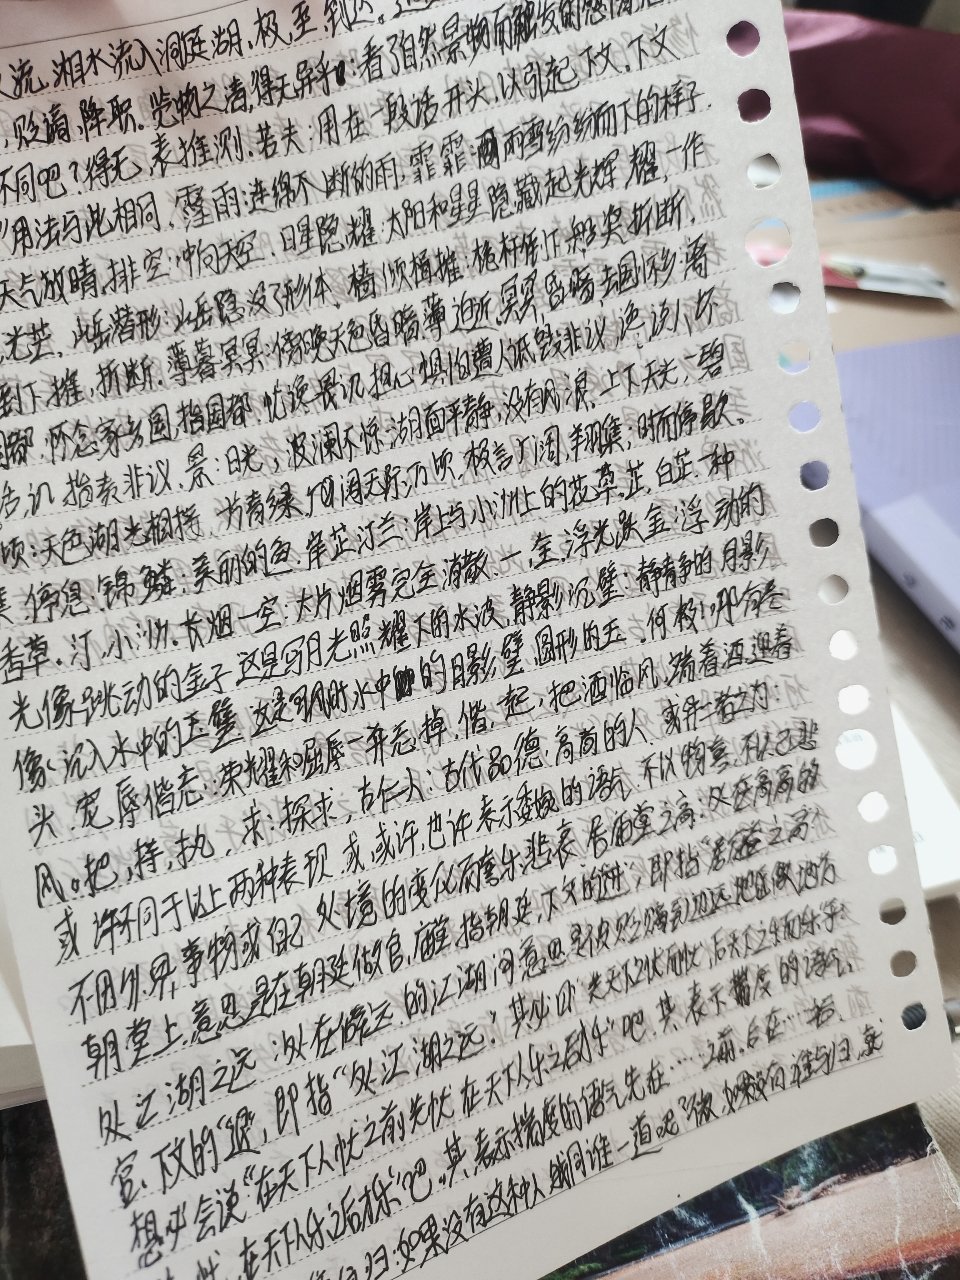 流,湘水流入洞庭湖,极,至,到达.
,贬谪,降职.览物之情,得无异乎:看了自然景物而触发的感情
不同吧?得无,表推测.若夫:用在一段话开头,以引起下文.下文
用法与此相同.霪雨:连绵不断的雨,霏霏:雨雪纷纷而下的样子.
天气放晴,排空:冲向天空.日星隐耀:太阳和星星隐藏起光辉,耀,一作
光芒,山岳潜形:山岳隐没了形体.樯倾楫摧:桅杆倒下,船桨折断.
倒下.摧,折断.薄暮冥冥:傍晚天色昏暗.薄,迫近.冥冥,昏暗.去国怀乡:离
国都,怀念家乡.国,指国都.忧谗畏讥:担心惧怕遭人诋毁非议.谗,说人坏
讥,指责非议.景:日光,波澜不惊:湖面平静,没有风浪.上下天光,一碧
顷:天色湖光相接,一片青绿,广阔无际.万顷,极言广阔,翔集:时而停歇.
集,停息.锦鳞:美丽的鱼.岸芷汀兰:岸上与小洲上的花草.芷,白芷.一种
香草.汀,小洲.长烟一空:大片烟雾完全消散.一,全,浮光跃金:浮动的
光像跳动的金子.这是写月光照耀下的水波,静影沉璧:静静的月影
像沉入水中的玉璧.这是写风时水中的月影.璧,圆形的玉.何极:哪有
头.宠辱偕忘:荣耀和屈辱一并忘掉,偕,一起,把酒临风:端着酒迎着
风.把,持,执,求:探求,古仁人:古代品德高尚的人.或异二者之为:
或许不同于以上两种表现.或,或许,也许,表示委婉的语气.不以物喜,不以己悲
不因外界事物或自己处境的变化而喜乐悲哀.居庙堂之高:处在高高的
朝堂上,意思是在朝廷做官,庙堂,指朝廷,下文的"进",即指"居庙堂之高"
处江湖之远:处在僻远的江湖间,意思是被贬谪到边远地区做地方
官,下文的"退",即指"处江湖之远".其必曰"先天下之忧而忧,后天下之乐而乐"乎
想必会说"在天下人忧之前先忧,在天下人乐之后才乐"吧.其,表示揣度的语气.
忧,在天下人乐之后才乐"吧.其,表示揣度的语气.先在……之前.后在……后.
归:如果没有这种人,我同谁一道呢?微,如果没有.谁与归,